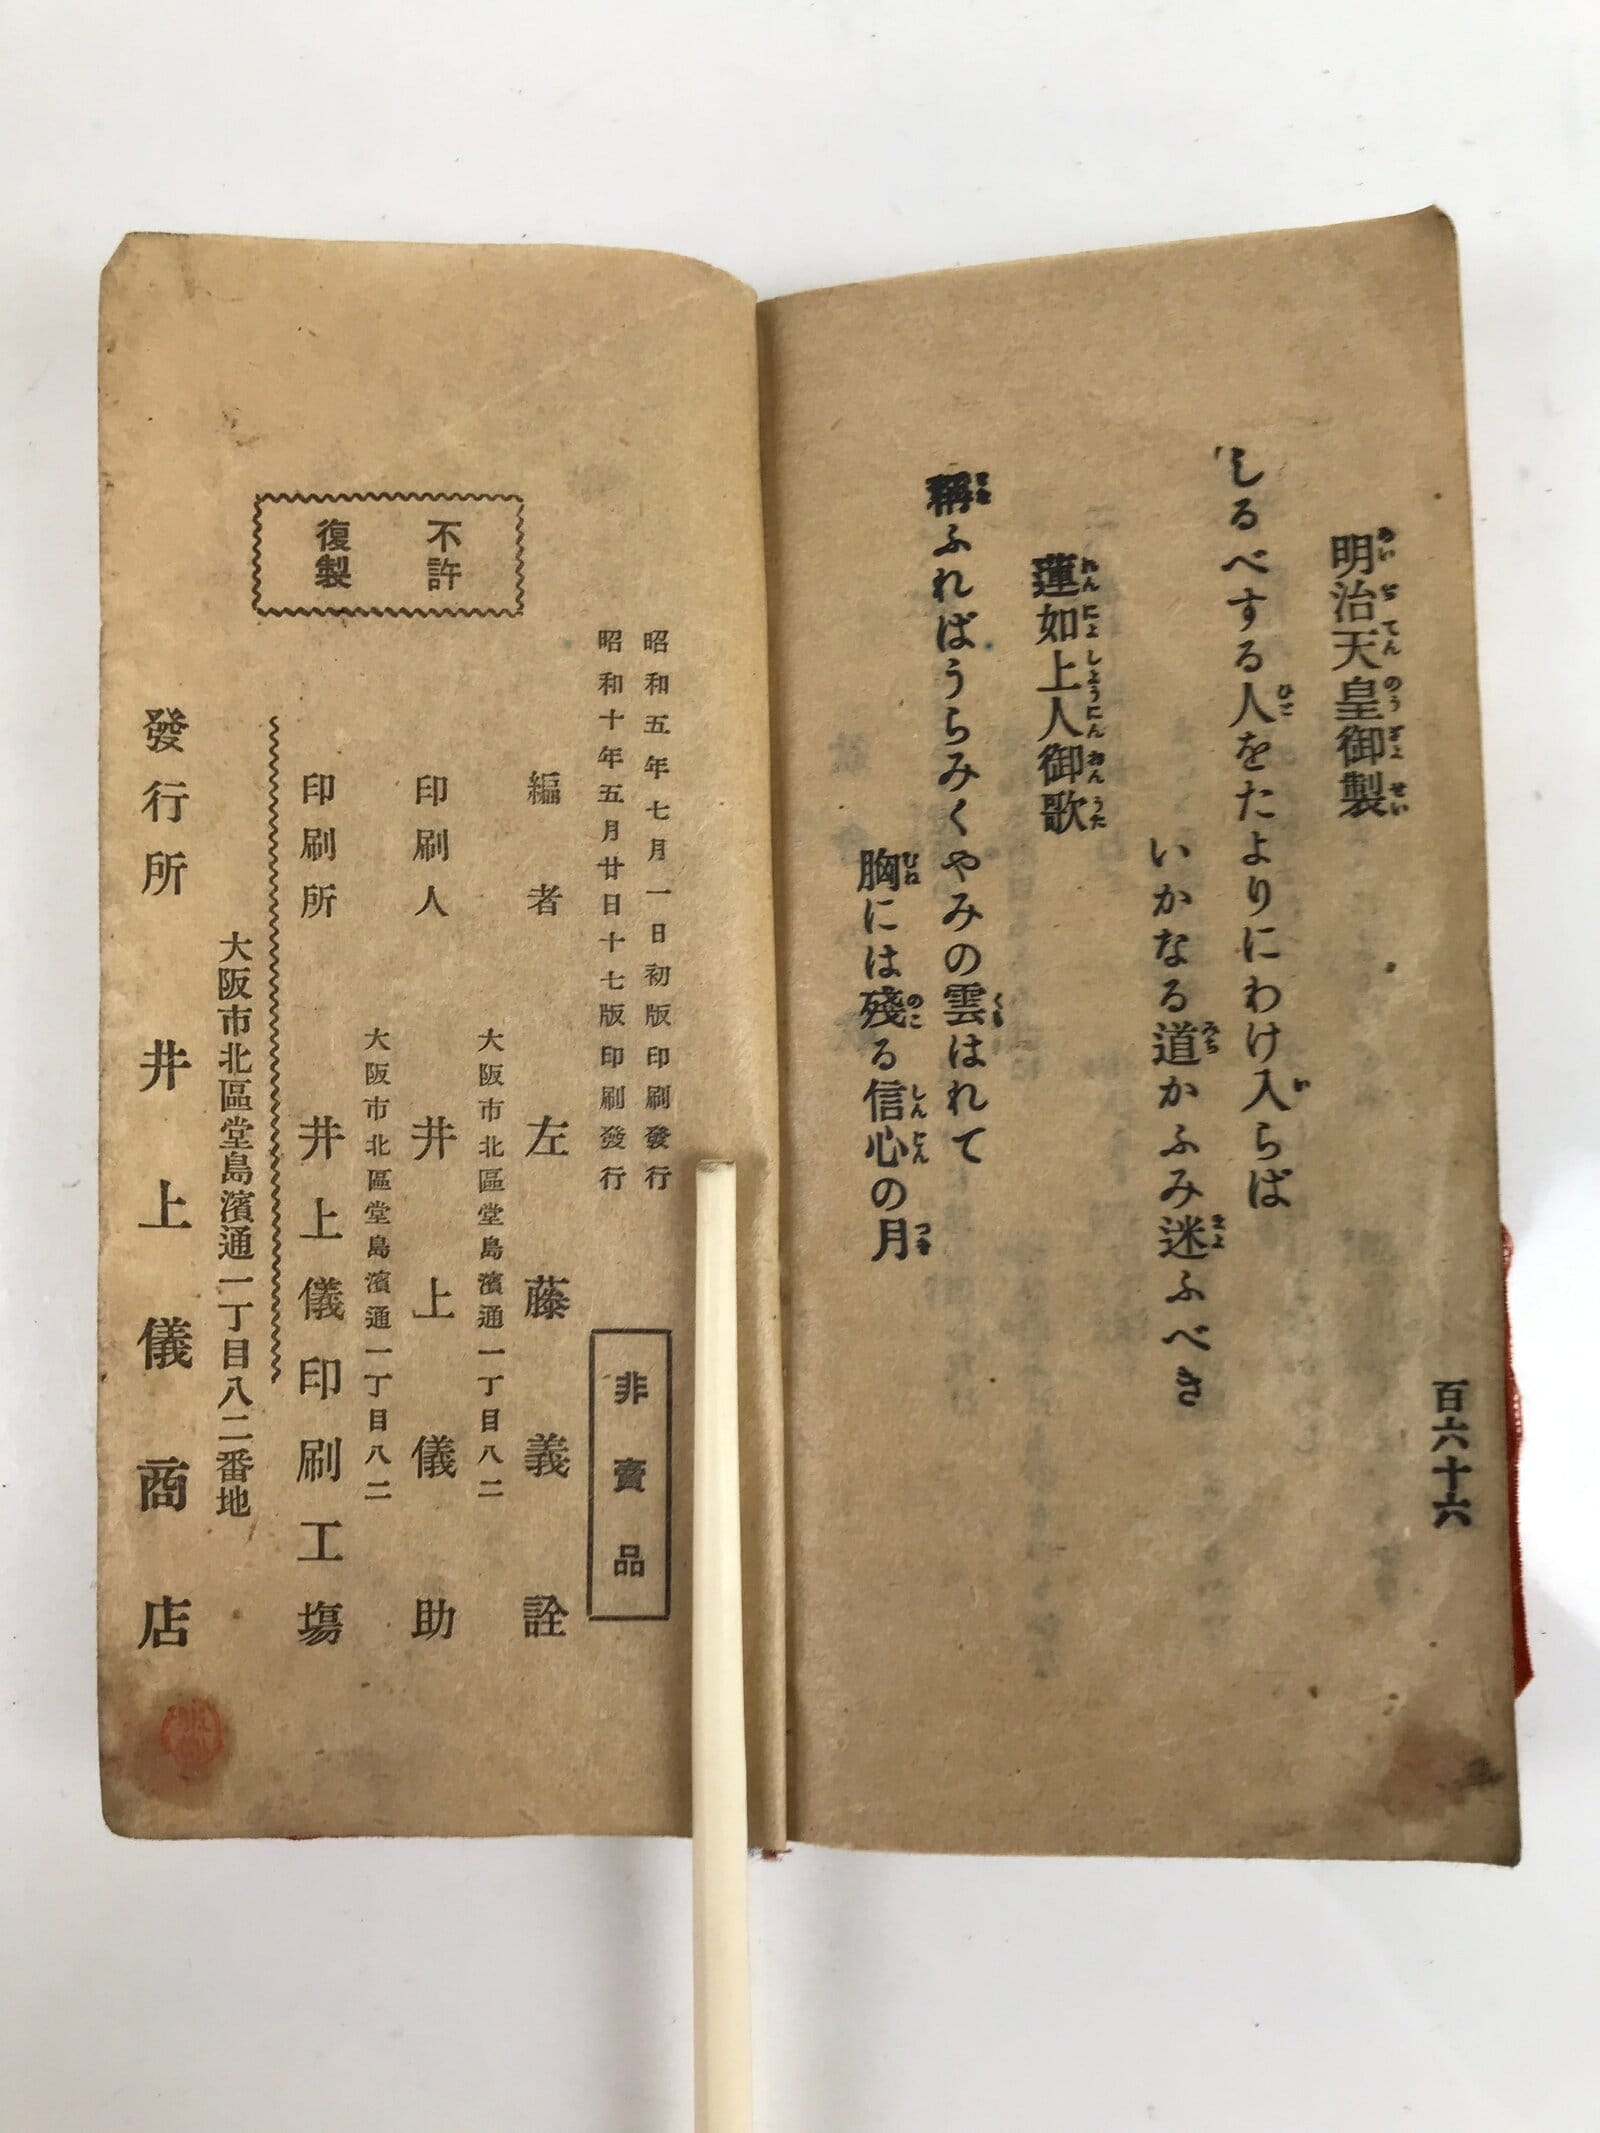 明治天皇御製
しるべする人をたよりにわけ入らば
いかなる道かふみ迷ふべき
蓮如上人御歌
稱ふればうらみくやみの雲はれて
胸には殘る信心の月
百六十六
不許
復製
昭和五年七月一日初版印刷發行
昭和十年五月廿日十七版印刷發行
非賣品
編者 左藤義詮
大阪市北區堂島濱通一丁目八二
印刷人 井上儀助
大阪市北區堂島濱通一丁目八二
印刷所 井上儀印刷工場
大阪市北區堂島濱通一丁目八二番地
發行所 井上儀商店